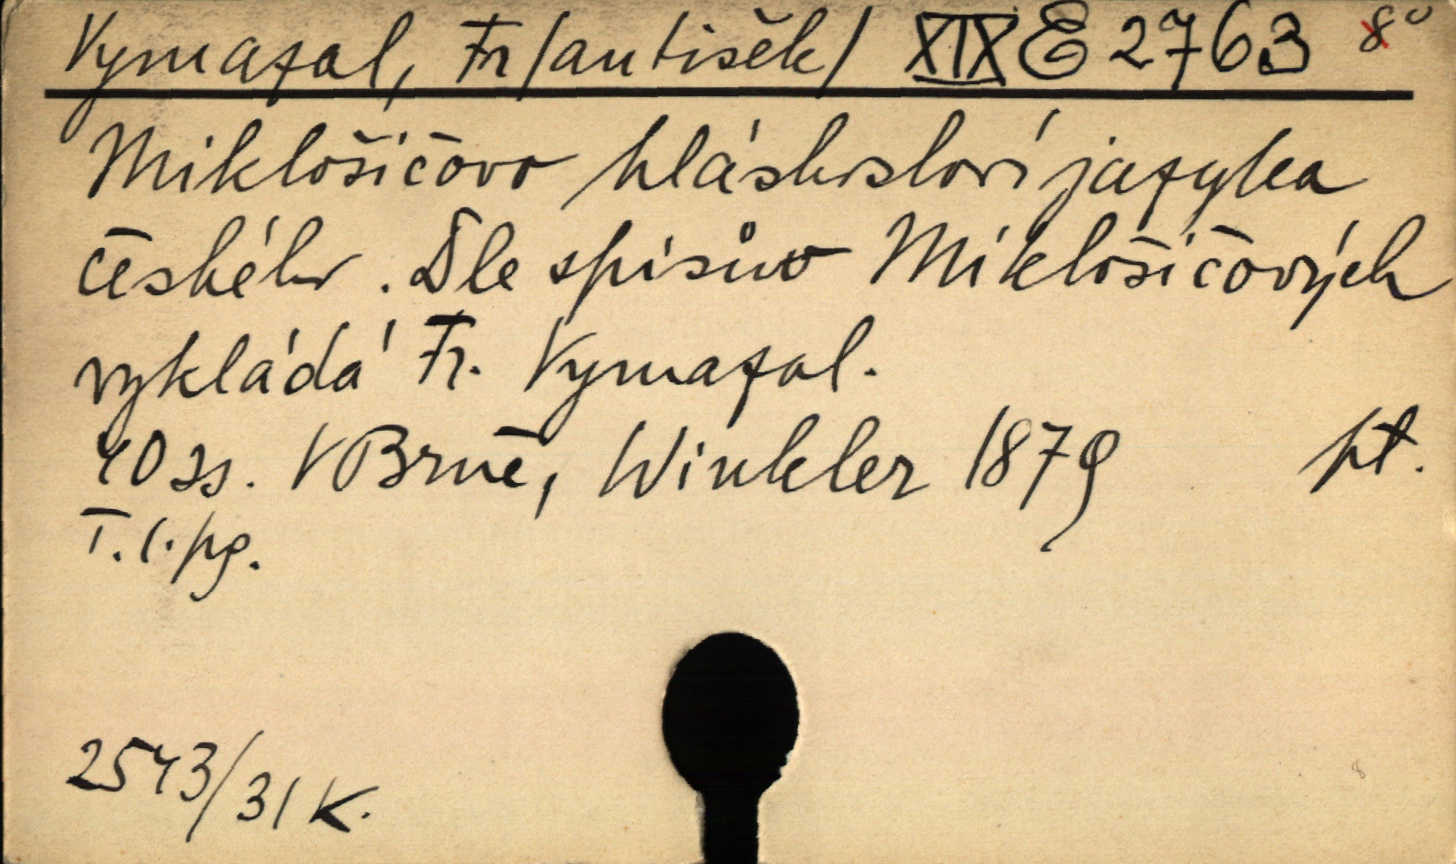 Vymazal, Fr/antišek/ XIX E 2763 8°
Miklošičovo hláskosloví jazyka
českého. Dle spisův Miklošičových
vykládá Fr. Vymazal.
40 ss. V Brně, Winkler 1879 pt.
T. l. pg.
2543/31 K.
8